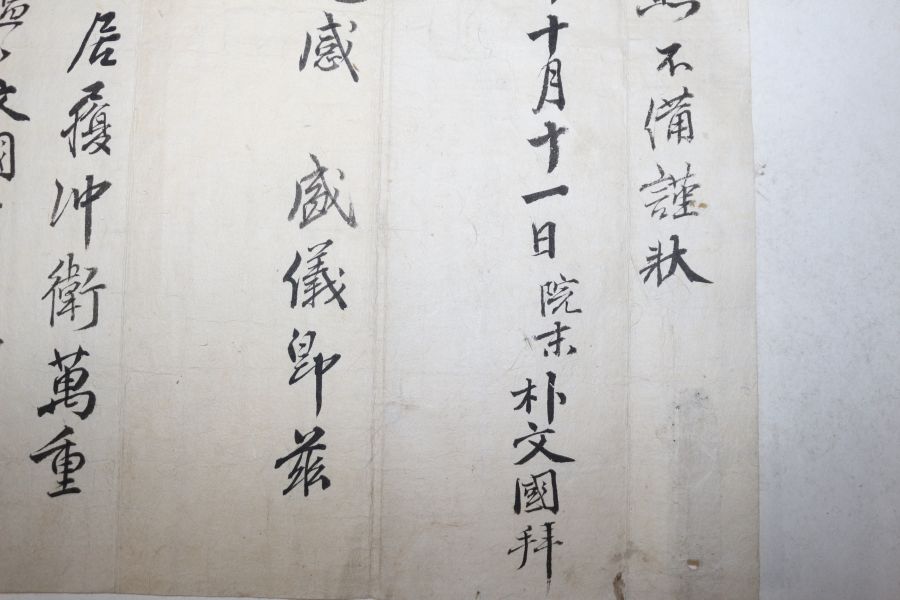 不備謹狀
十月十一日 院末 朴文國 拜
感 盛儀即茲
居獲沖衛萬重
文國